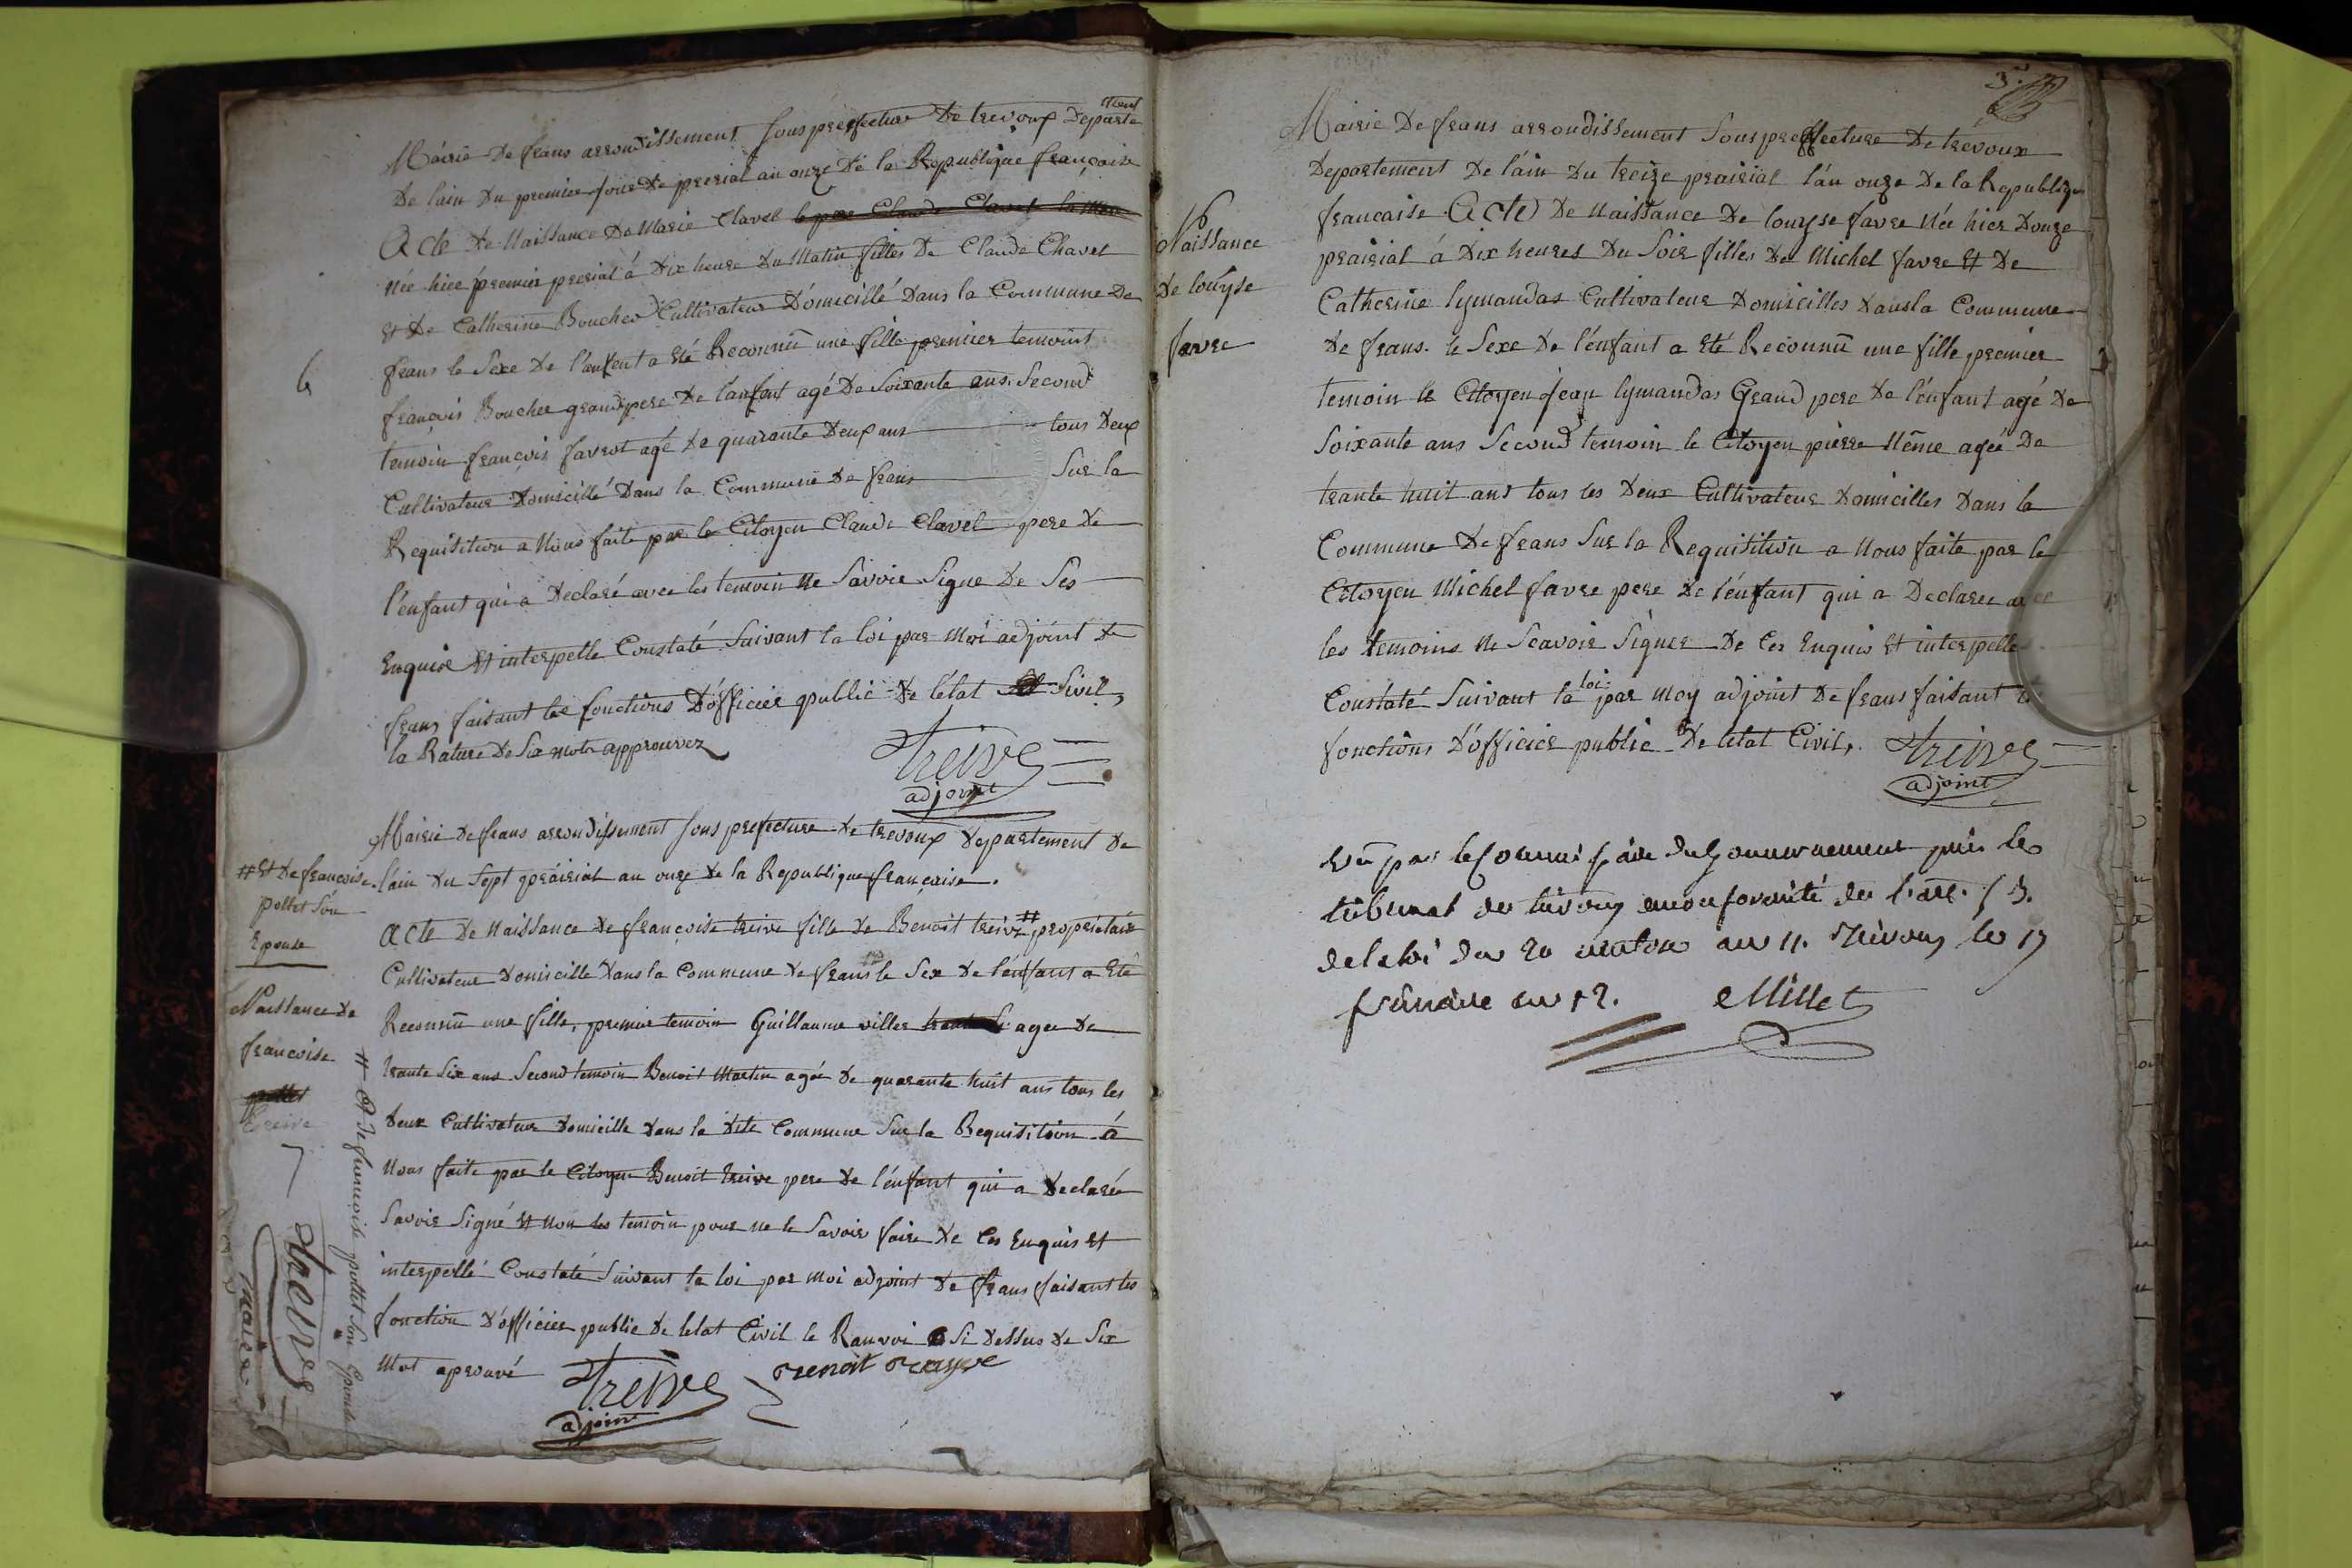 Mairie De frans arrondissement sous prefecture De trevoux Departe
ment
De lain Du premier jour De prerial an onze De la Republique françoise
Acte De Naissance De Marie Clavel le pere Claude Clavel la Mere
Née hier premier prerial à Dix heure Du Matin filles De Claude Chavel
et De Catherine Boucher Cultivateur Domicillé Dans la Commune De
frans le Sexe De l'anfent a Eté Reconnu une fille premier temoint
6
françois Boucher grandpere De l'anfant agé De Soixante ans. Second
temoin françois favrot agé De quarante Deux ans tous Deux
Cultivateur Domicillé Dans la Commune De frans Sur la
Requisition a Nous faite par le Citoyen Claude Clavel pere De
l'enfant qui a Declaré avec les temoin Ne Savoir Signe De Ses
Enquise Et interpelle Constaté Suivant la loi par Moi adjoint De
frans faisant les fonctions D'officier public De l'état Sivil,
la Rature De Six mots approuvez
Treive
adjoint
Mairie De frans arrondissement sous prefecture De trevoux Departement De
l'ain Du Sept prairial an onze De la Republique française.
# Et De francoise
pollet Son
Epouse
Acte De Naissance De françoise treive fille De Benoit treive # propriétaire
Cultivateur Domicille Dans la Commune De frans le Sex De l'énfant a Eté
Naissance De
francoise
pollet
treive
7
Reconnu une fille, premier temoin Guillaume villes agee De
trante Six ans Second temoin Benoit Martin agée De quarante huit ans tous les
Deux Cultivateur Domicille Dans la Dite Commune Sur la Requisition à
Nous faite par le Citoyen Benoit treive pere De l'énfant qui a Declarée
Savoir Signé Et Non les temoin pour ne le Savoir faire De Ces Enquis Et
interpellé Constaté Suivant la loi par Moi adjoint De frans faisant les
fonction D'officier public De letat Civil le Ranvoi Si Dessus De Six
Mot aprouvé
Treive
adjoint
# Et De francoise pollet Son Epouse
Treive
maire
3.
Mairie De frans arrondissement Sous preffecture De trévoux
Departement De l'áin Du treize prairial l'án onze De la Republique
francaise. Acte De Naissance De louyse favre Née hier Douze
Naissance
De louyse
favre
prairial à Dix heures Du Soir filles De Michel favre Et De
Catherine lymandas Cultivateur Domicilles Dans la Commune
De frans. le Sexe De l'énfant a Eté Reconnu une fille premier
temoin le Citoyen Jean lymandas Grand pere De l'énfant agé De
Soixante ans Second temoin le Citoyen pierre Même agée De
trante huit ans tous les Deux Cultivateur Domicilles Dans la
Commune De frans Sur la Requisition a Nous faite par le
Citoyen Michel favre pere De l'énfant qui a Declaree avec
les temoins Ne Scavoir Signer De Ces Enquis Et interpelle
Constaté Suivant la loi par Moy adjoint De frans faisant
fonctions D'officier public De létat Civil,.
Treive
adjoint
Vu par le Commissaire du gouvernement près le
tribunal de trevoux en conformité de l'art.
de la loi du 20 ventose an 11. Trévoux le 17
frimaire an 12. Millet